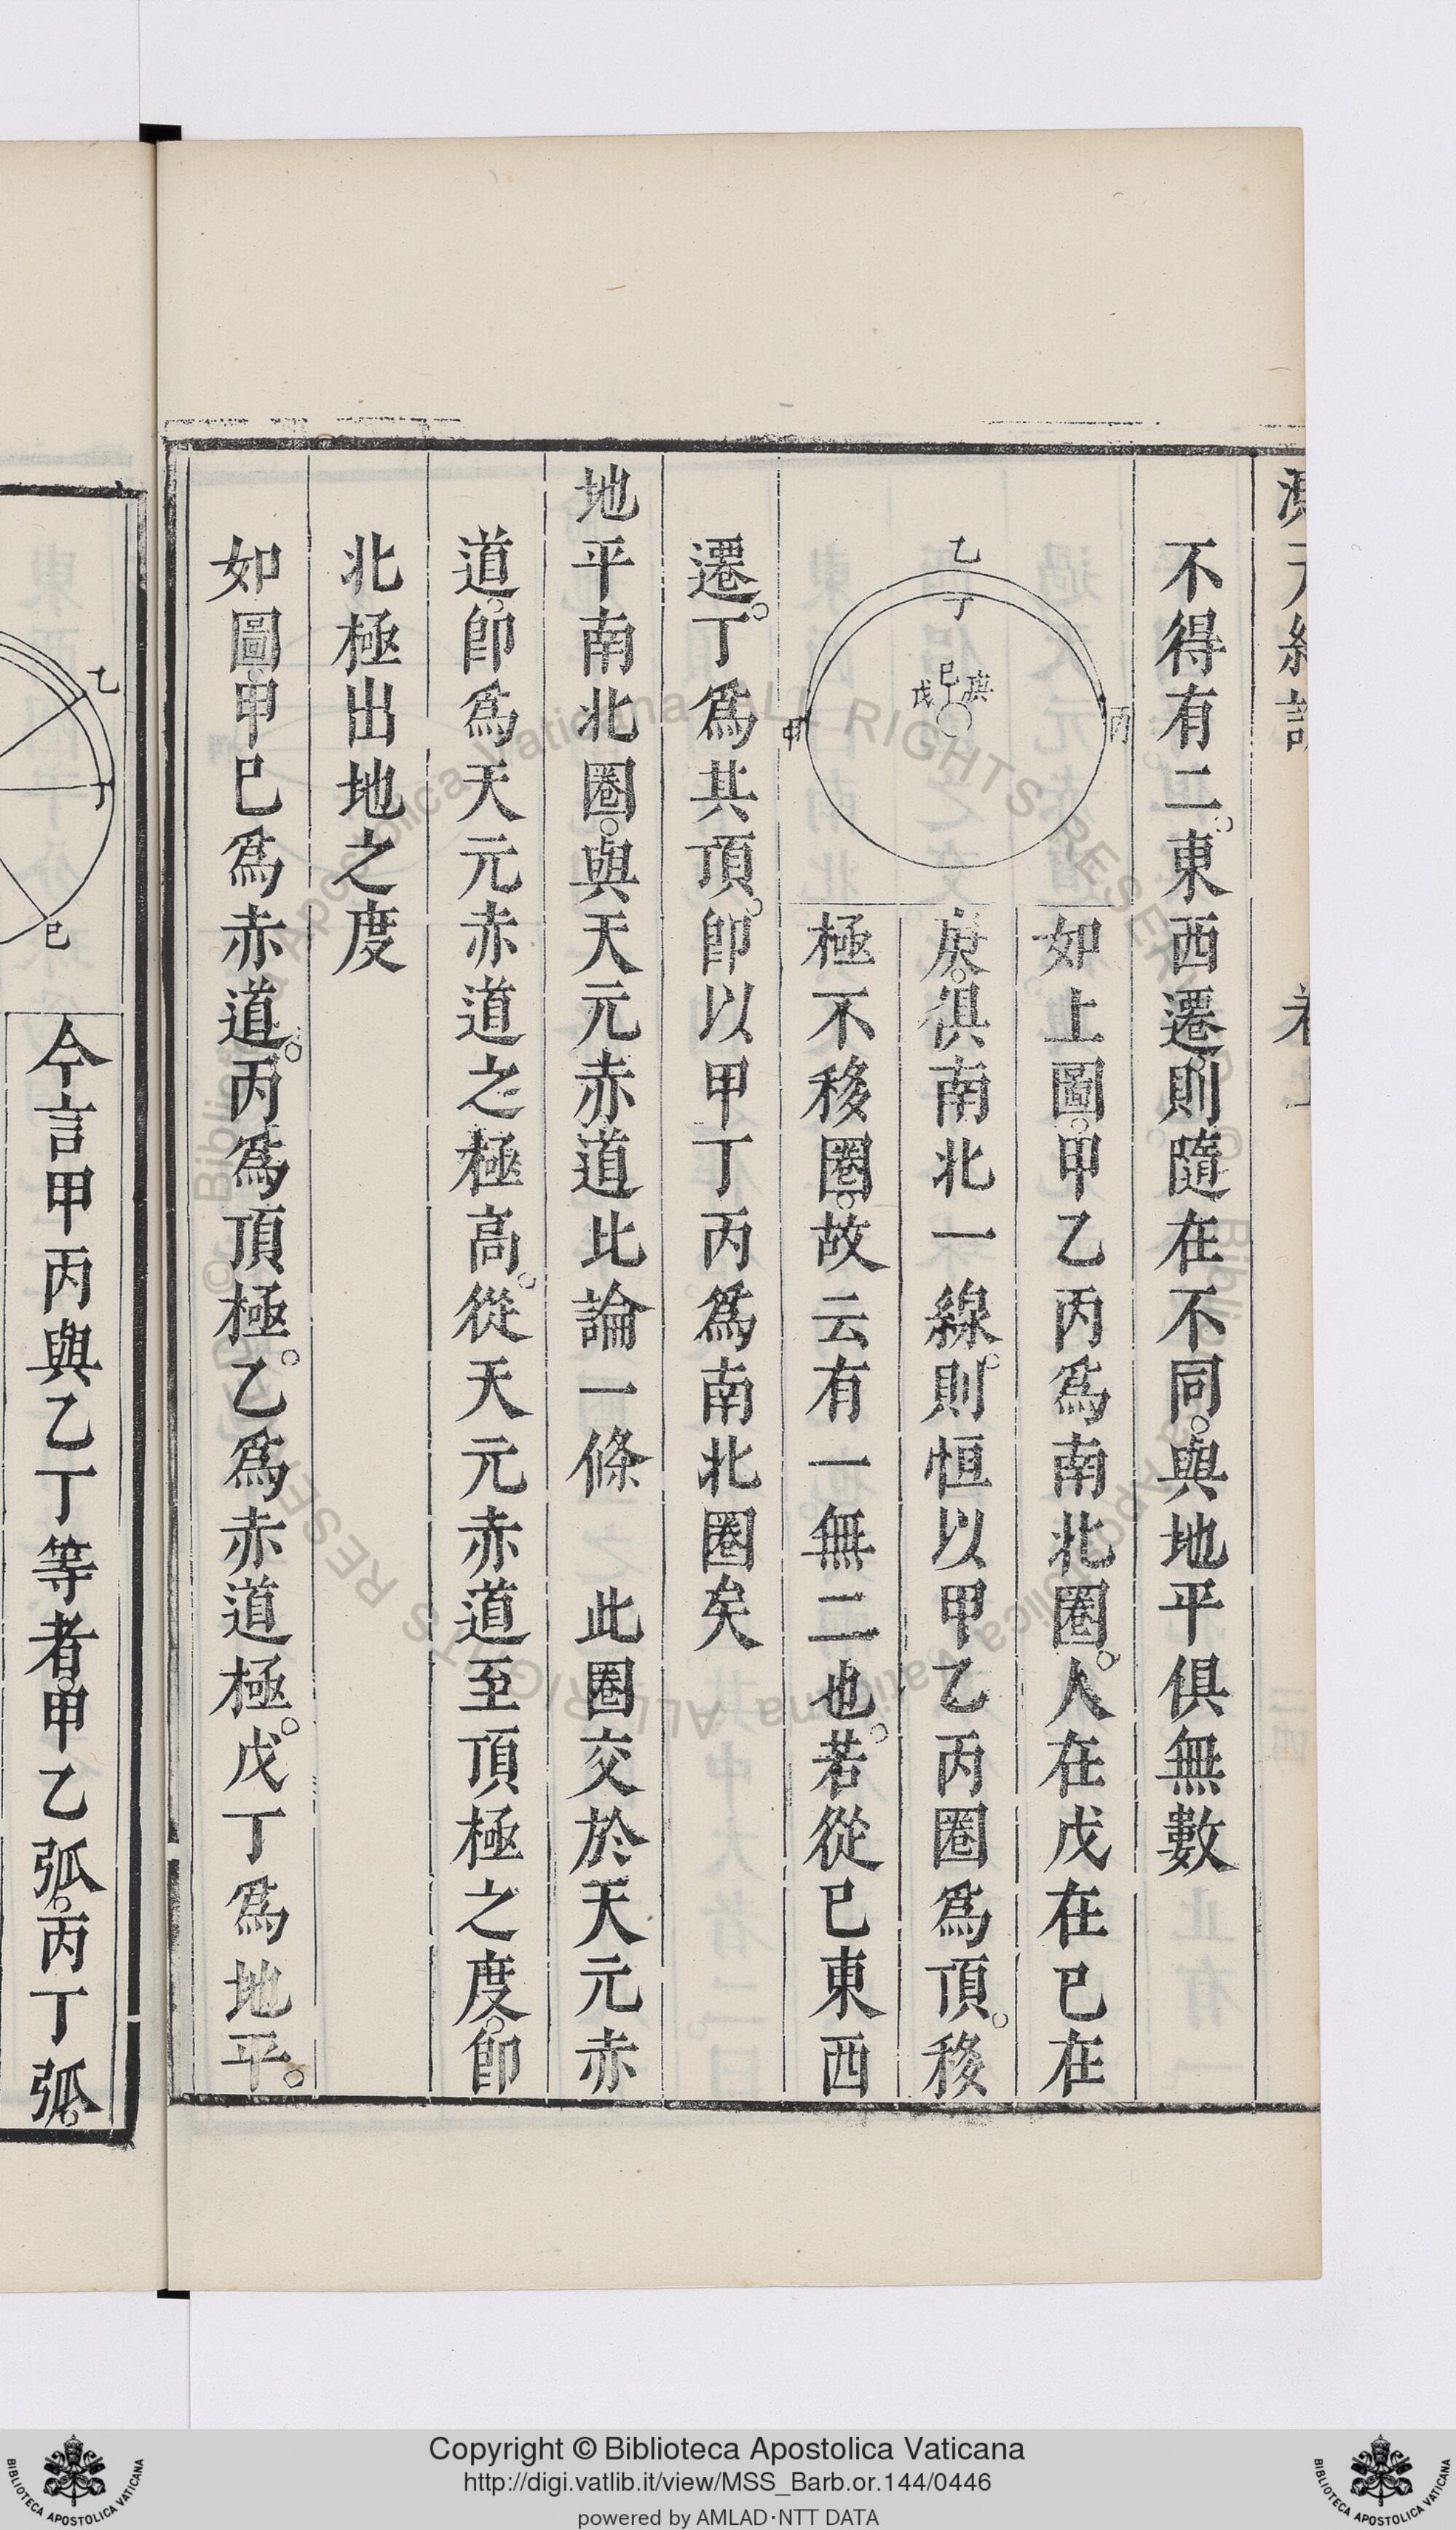 測天約說
卷上
不得有二。東西遷則隨在不同。與地平俱無數
乙
丁
己
戊
庚
甲
丙
如上圖。甲乙丙爲南北圈。人在戊在已在
庚。俱南北一線。則恒以甲乙丙圈爲頂。移
極不移圈。故云有一無二也。若從已東西
遷。丁爲共頂。卽以甲丁丙爲南北圈矣
地平南北圈。與天元赤道比論一條 此圈交於天元赤
道。卽爲天元赤道之極高。從天元赤道至頂極之度。卽
北極出地之度
如圖。甲已爲赤道。丙爲頂極。乙爲赤道極。戊丁爲地平。
乙
丁
已
今言甲丙與乙丁等者。甲乙弧。丙丁弧。
© Biblioteca Apostolica Vaticana ALL RIGHTS RESERVED
Copyright © Biblioteca Apostolica Vaticana
http://digi.vatlib.it/view/MSS_Barb.or.144/0446
powered by AMLAD·NTT DATA
BIBLIOTECA APOSTOLICA VATICANA
BIBLIOTECA APOSTOLICA VATICANA